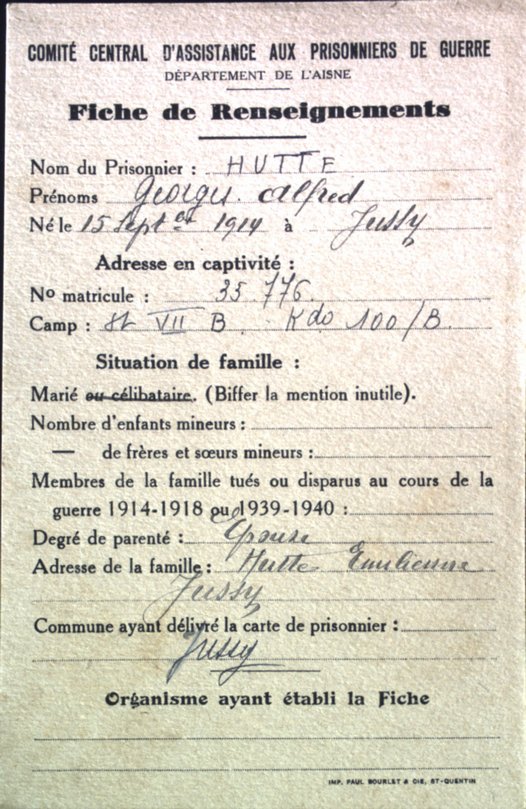 COMITÉ CENTRAL D'ASSISTANCE AUX PRISONNIERS DE GUERRE
DÉPARTEMENT DE L'AISNE
Fiche de Renseignements
Nom du Prisonnier : HUTTE
Prénoms Georges Alfred
Né le 15 Septbre 1914 à Jussy
Adresse en captivité :
No matricule : 35 776.
Camp : St VII B Kdo 100/B.
Situation de famille :
Marié ou célibataire. (Biffer la mention inutile).
Nombre d'enfants mineurs :
— de frères et sœurs mineurs :
Membres de la famille tués ou disparus au cours de la
guerre 1914-1918 ou 1939-1940 :
Degré de parenté : Epouse
Adresse de la famille : Hutte Emilienne
Jussy
Commune ayant délivré la carte de prisonnier :
Jussy
Organisme ayant établi la Fiche
IMP. PAUL BOURLET & CIE, ST-QUENTIN